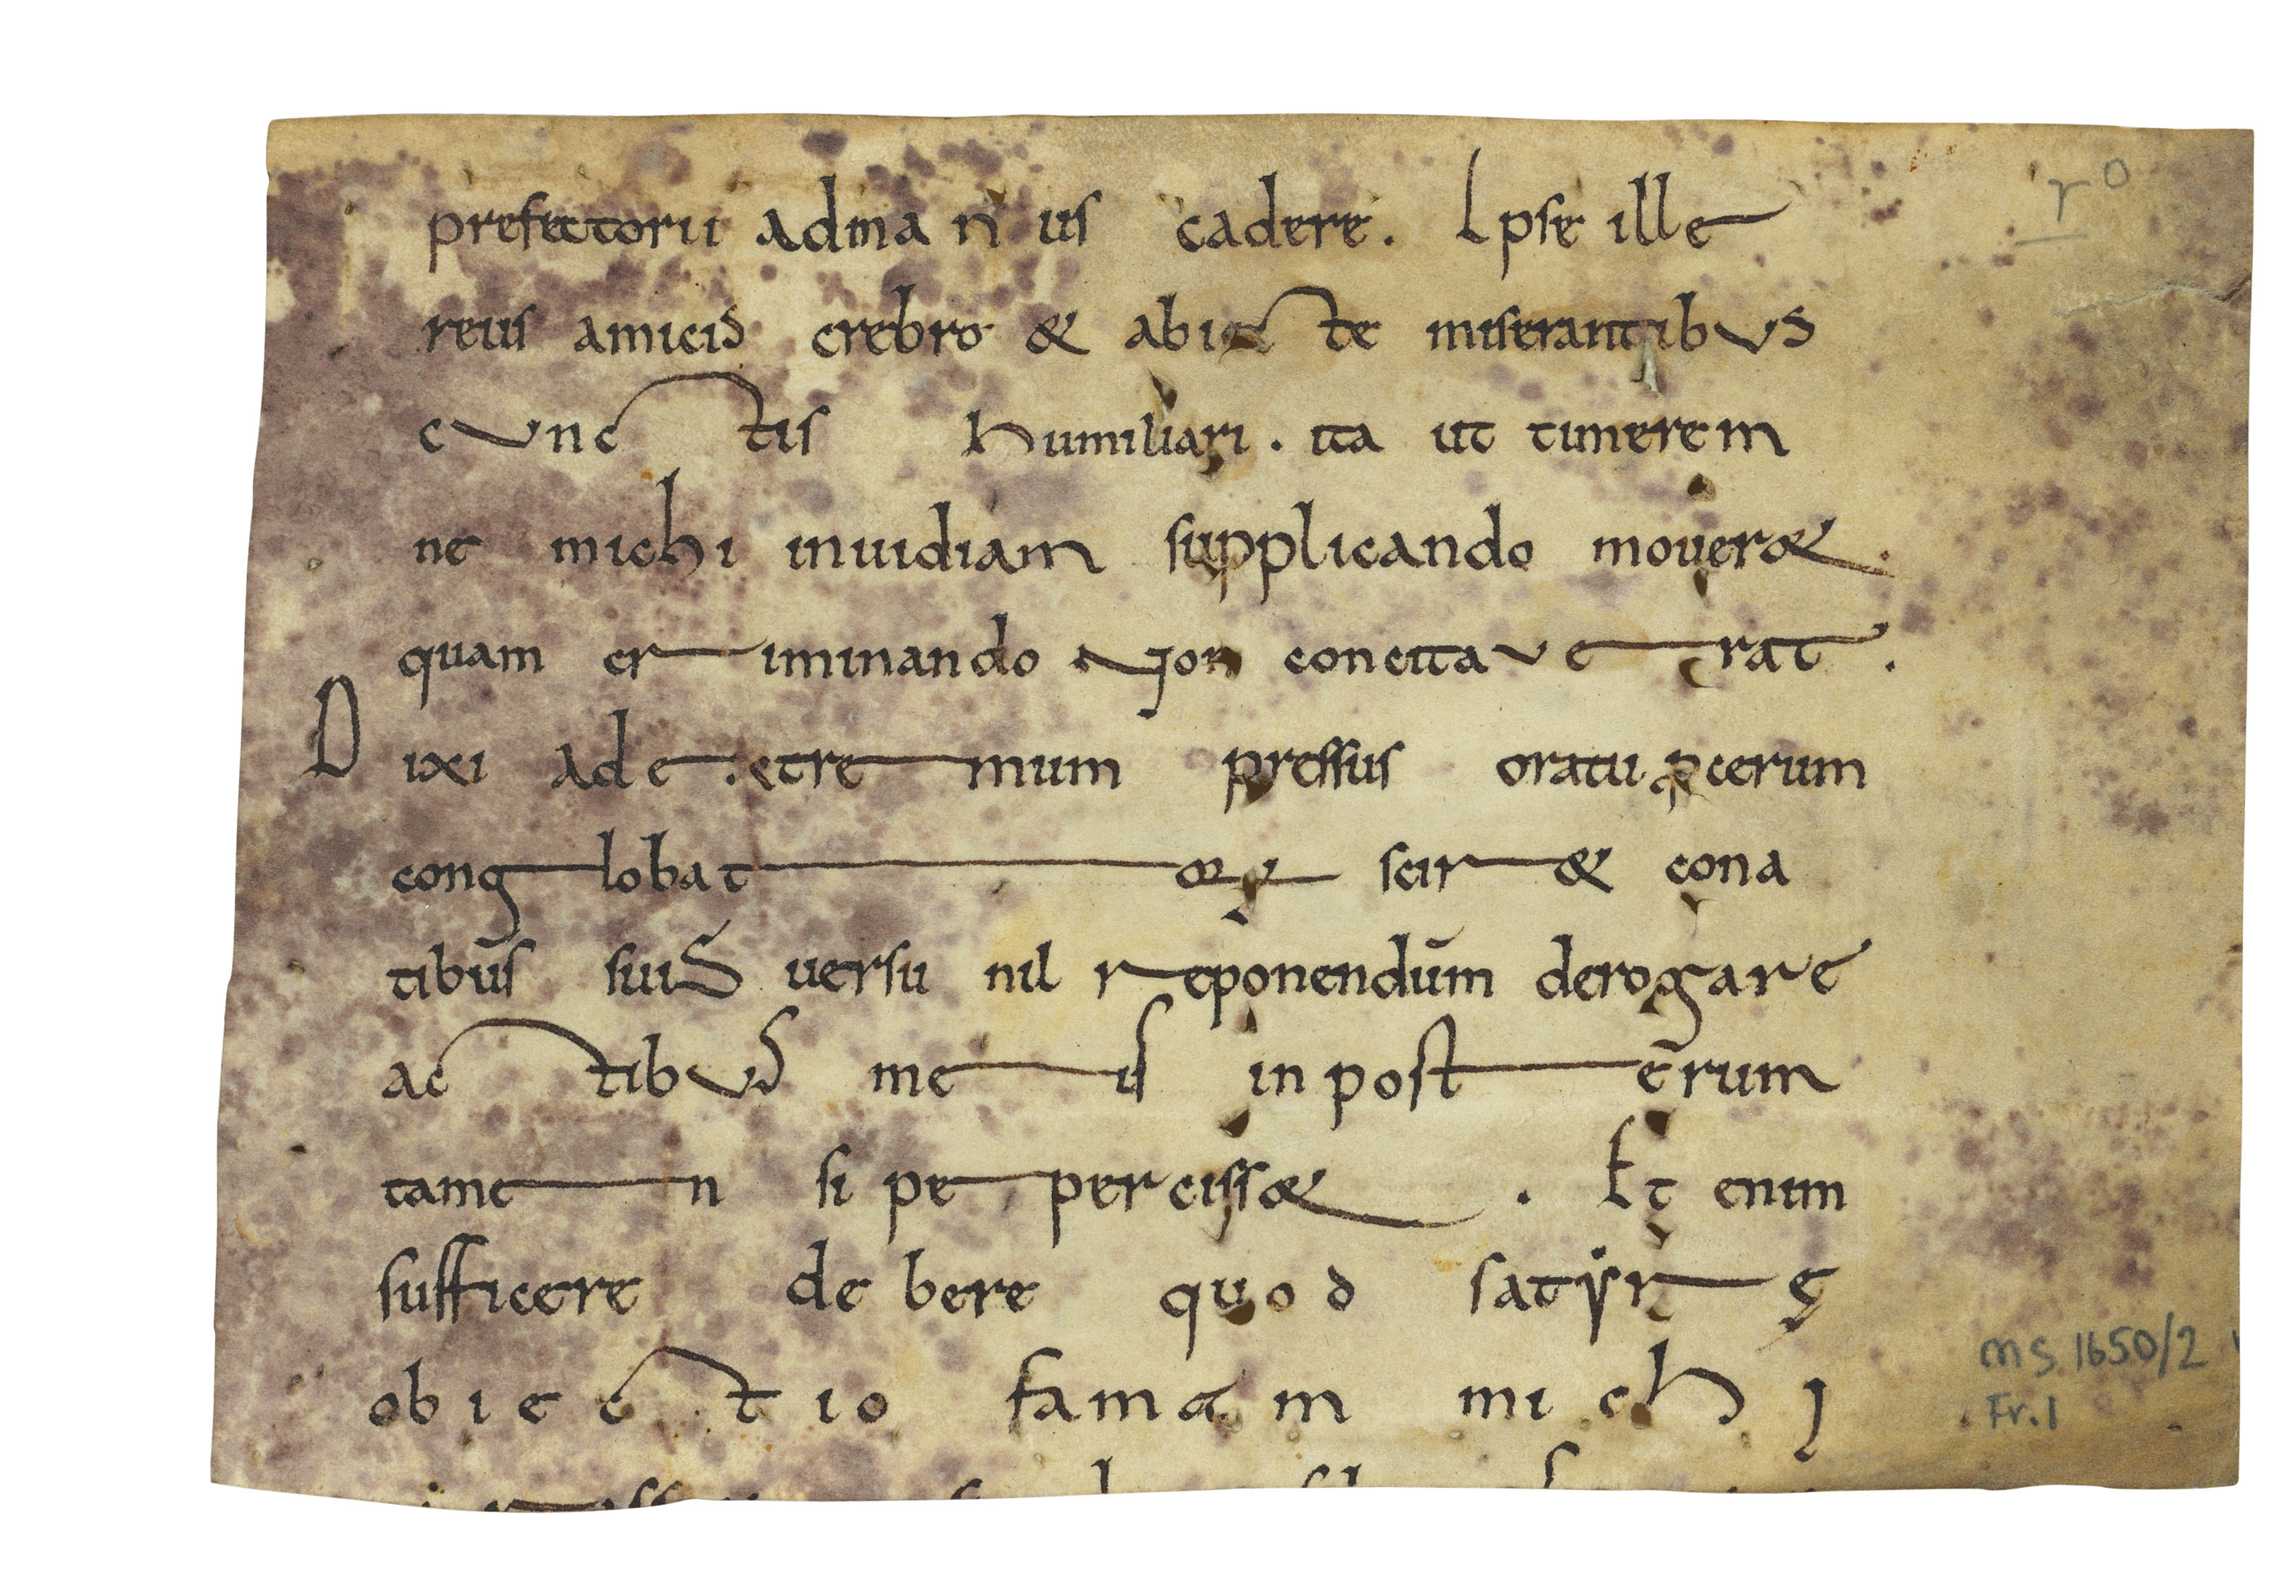 prefectorii adma nus cadere. Ipse ille
reus amicis crebro & abiecte miserantibus
cunctis humiliari. ita ut timerem
ne michi inuidiam supplicando mouer&.
quam criminando concitauerat.
Dixi ad extremum pressus oratu procerum
conglobatorum scir& cona
tibus suis uersu nil reponendum derogare
actibus meis in posterum
tamen si peperciss&. Et enim
sufficere debere quod satyrę
obiectio famam michi
rº
MS 1650/2
Fr. 1